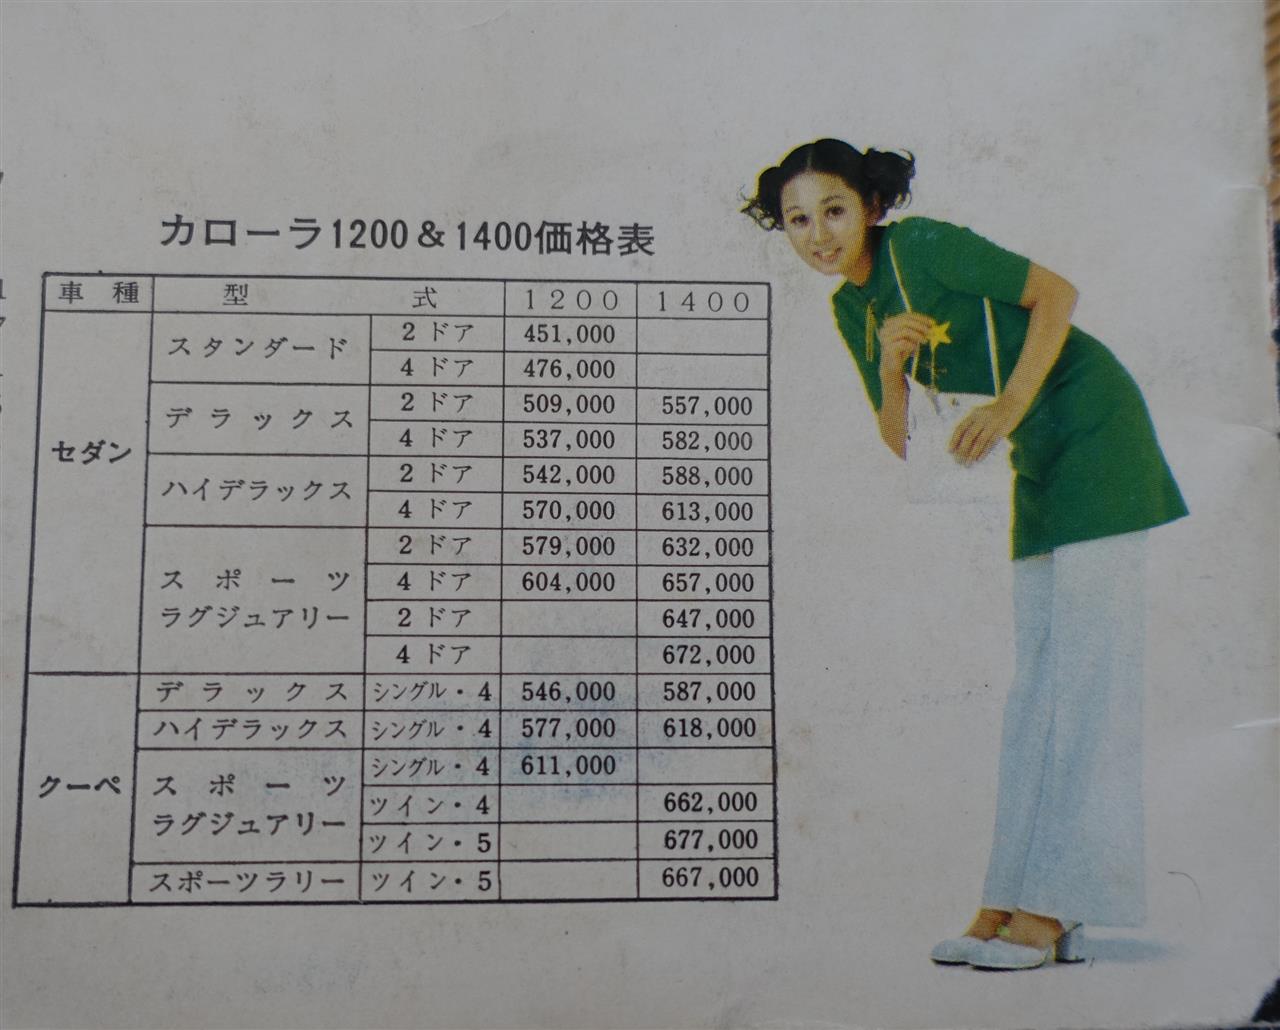 カローラ1200&1400価格表
車種 型式 1200 1400
セダン
スタンダード 2ドア 451,000
4ドア 476,000
デラックス 2ドア 509,000 557,000
4ドア 537,000 582,000
ハイデラックス 2ドア 542,000 588,000
4ドア 570,000 613,000
スポーツ
ラグジュアリー
2ドア 579,000 632,000
4ドア 604,000 657,000
2ドア 647,000
4ドア 672,000
クーペ
デラックス シングル・4 546,000 587,000
ハイデラックス シングル・4 577,000 618,000
スポーツ
ラグジュアリー
シングル・4 611,000
ツイン・4 662,000
ツイン・5 677,000
スポーツラリー ツイン・5 667,000